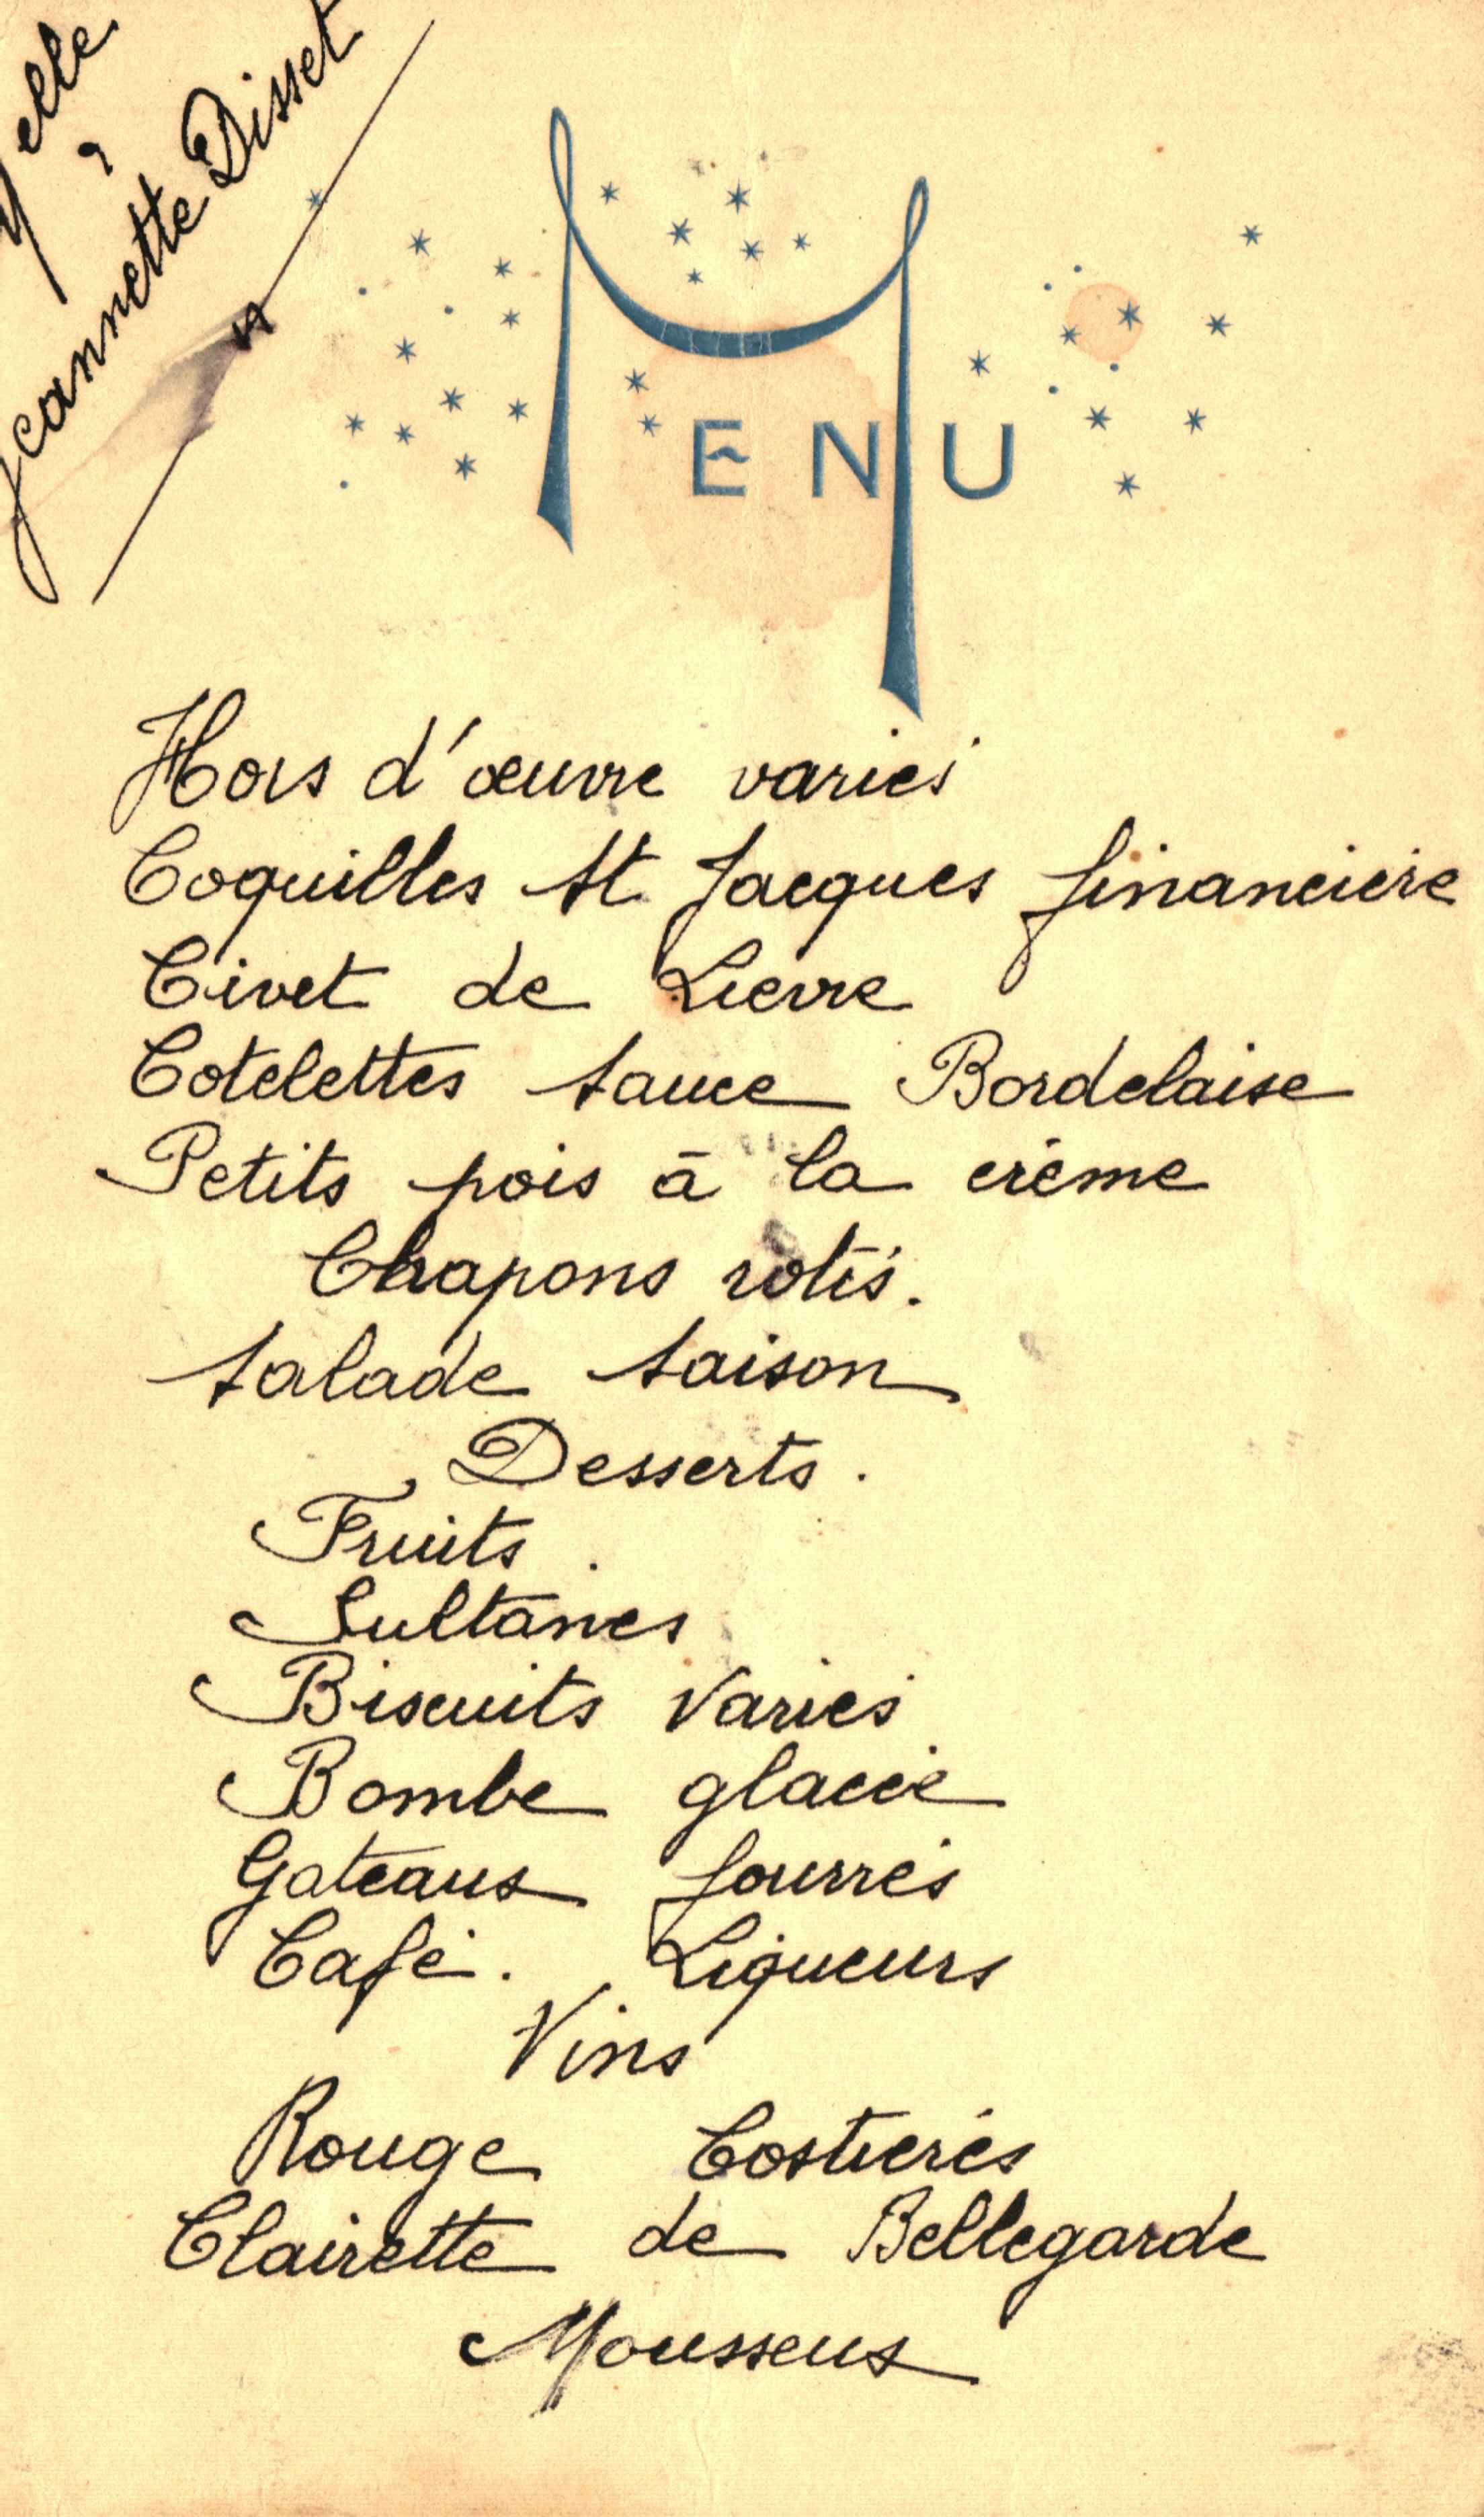 elle
Jeannette Disset
MENU
Hors d'œuvre variés
Coquilles St Jacques financière
Civet de Lievre
Cotelettes sauce Bordelaise
Petits pois à la crème
Chapons rotis.
Salade saison
Desserts.
Fruits.
Sultanes
Biscuits Variés
Bombe glacée
Gateaux fourrés
Café. Liqueurs
Vins
Rouge Costières
Clairette de Bellegarde
Mousseux